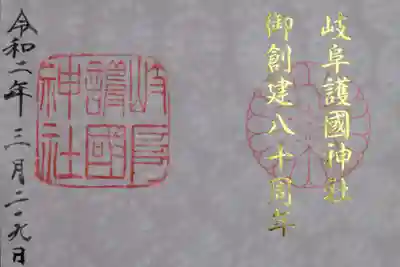 岐阜護國神社
御創建八十周年
岐阜護國神社
令和二年三月二十九日